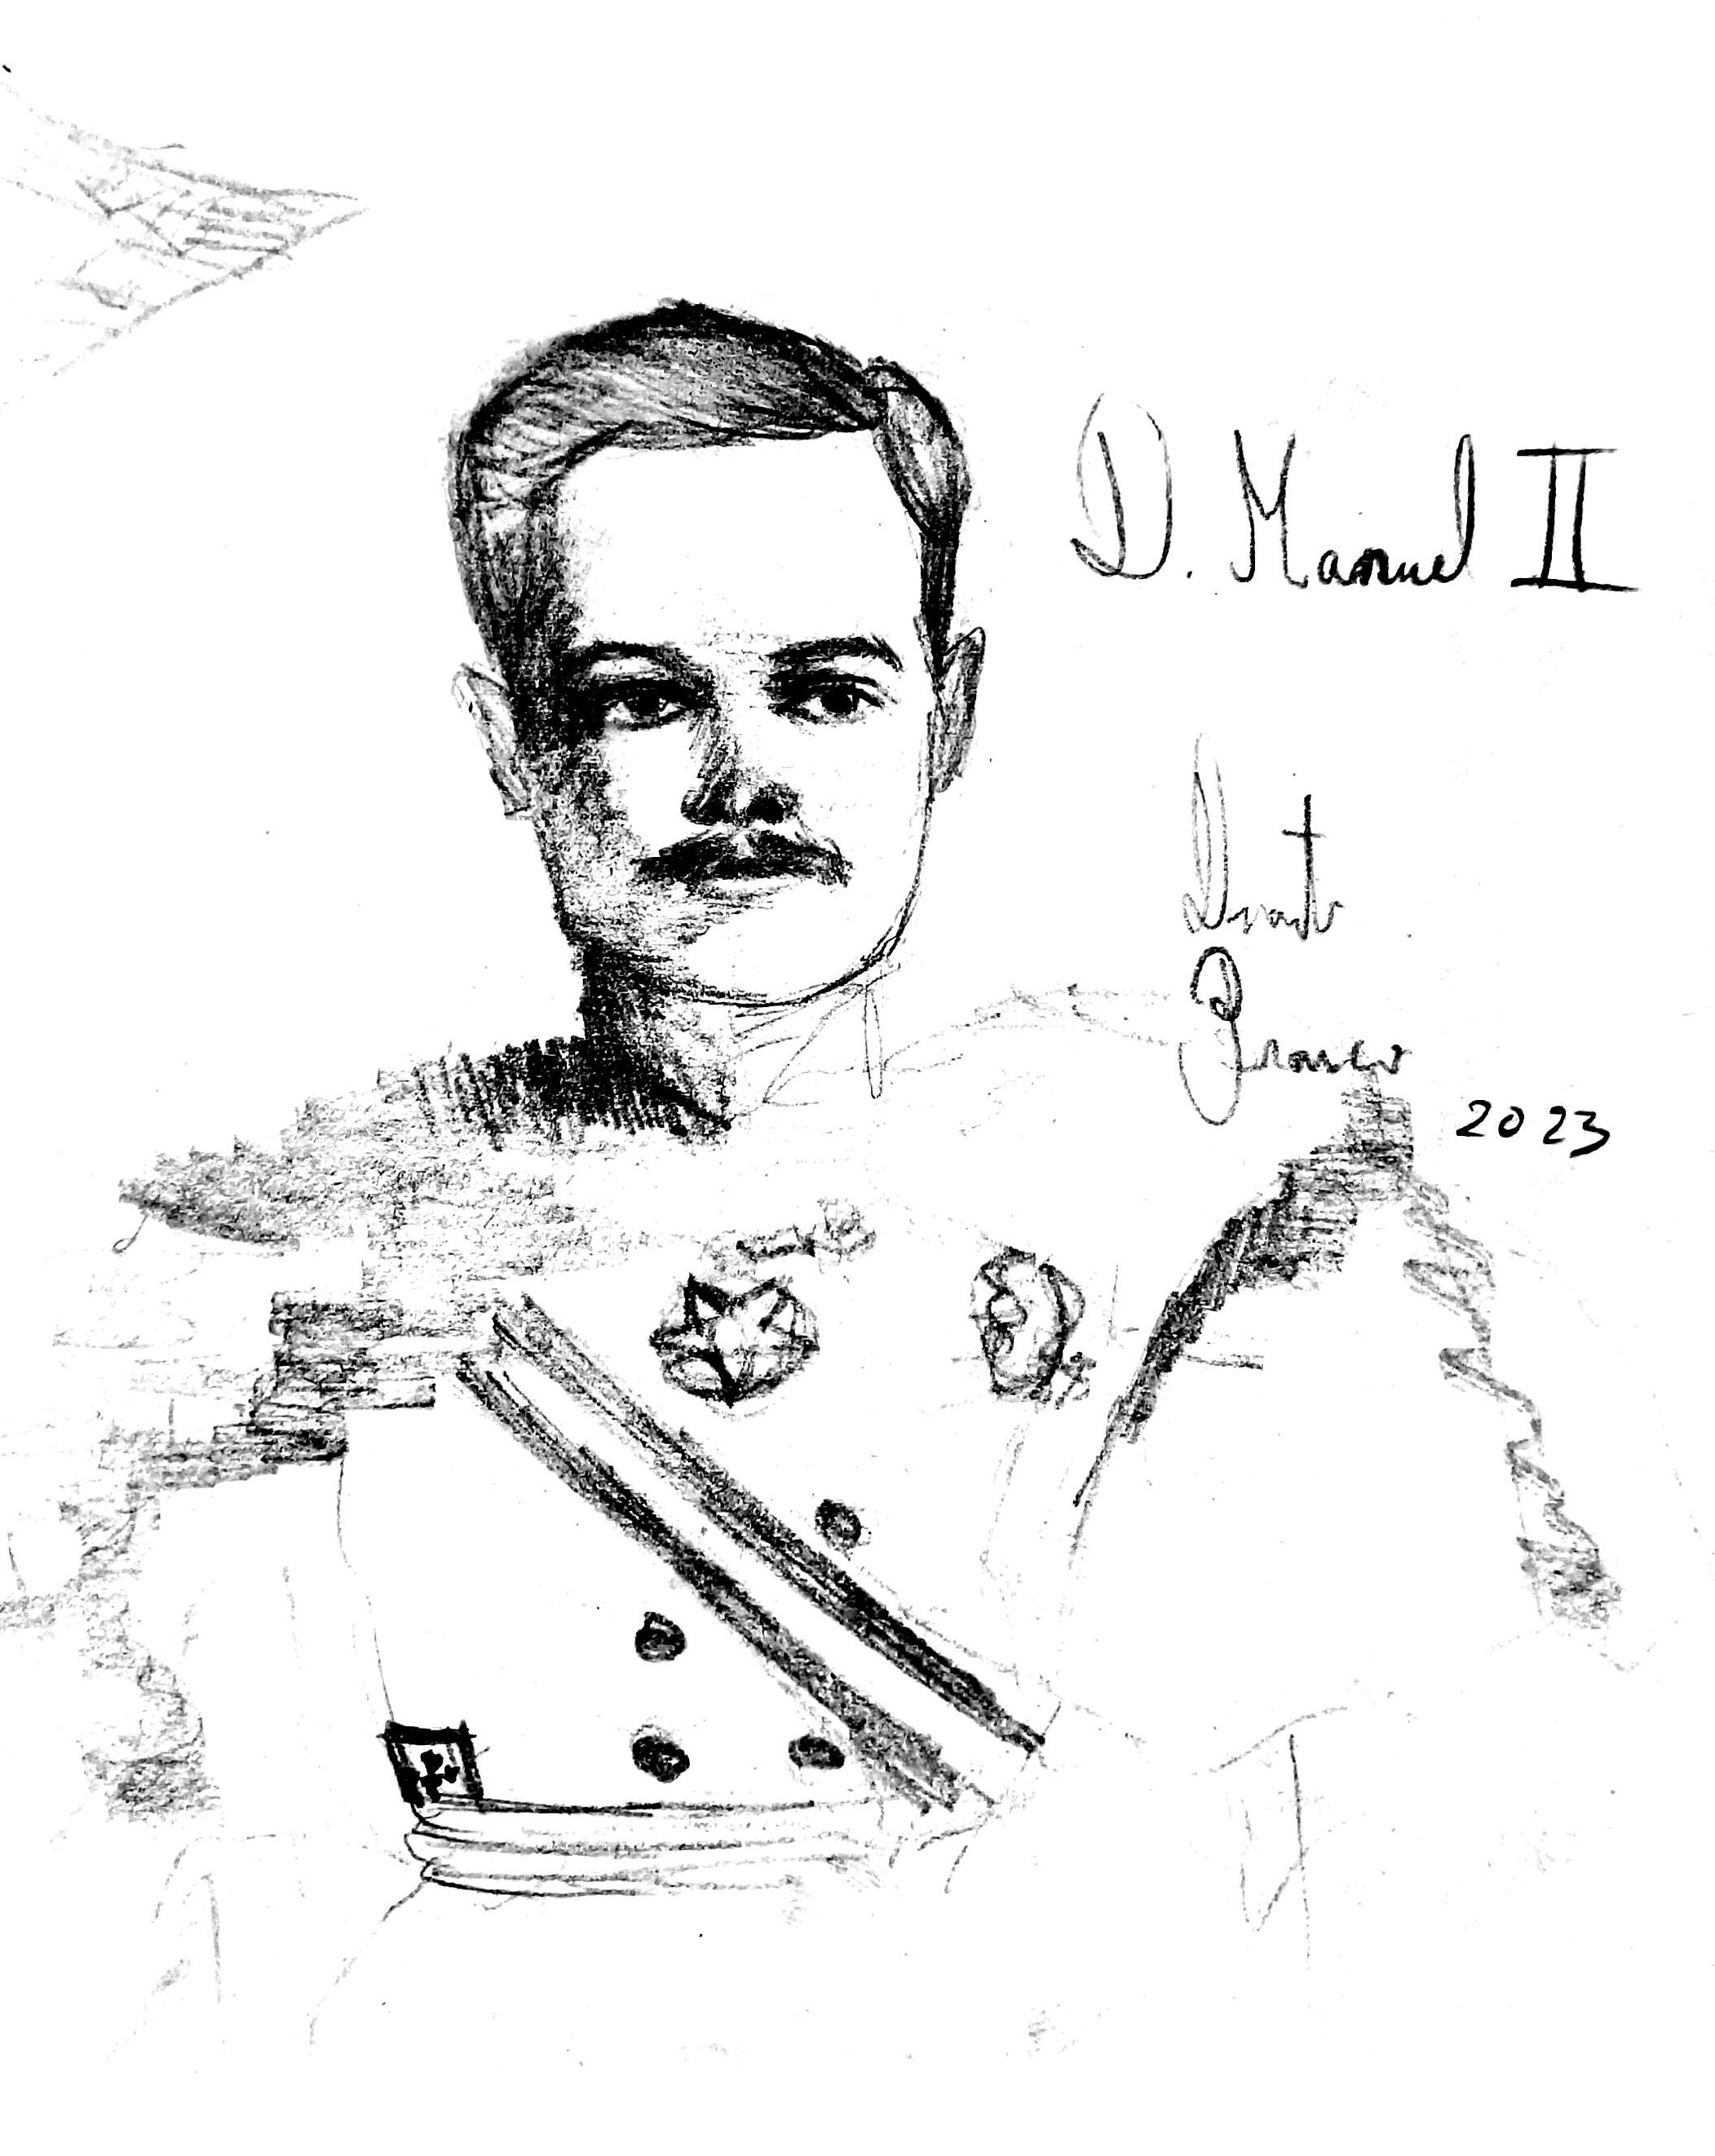 D. Manuel II
Duarte
Franco
2023